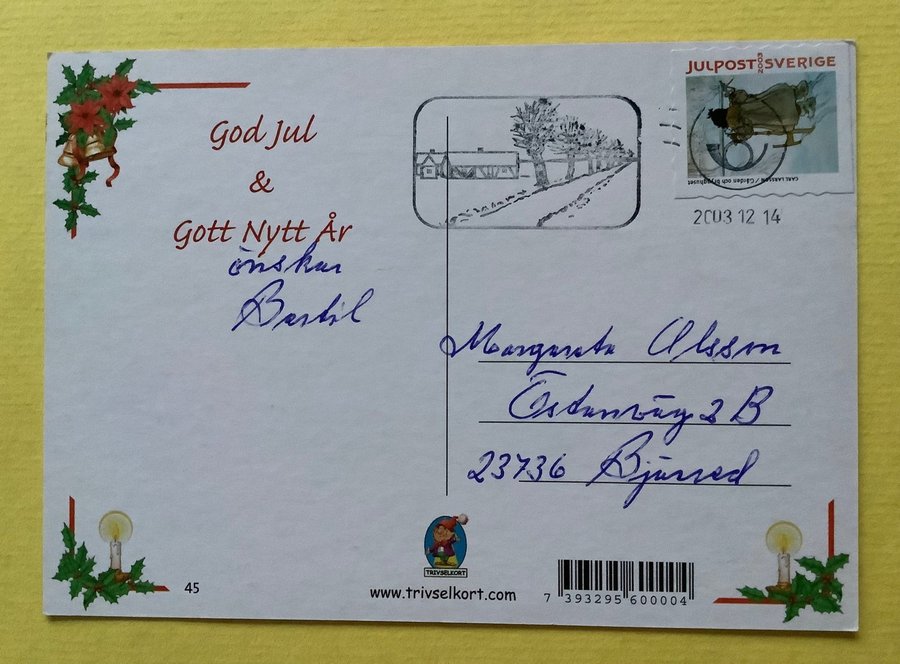 God Jul
&
Gott Nytt År
önskar
Bertil
JULPOST 2003 SVERIGE
CARL LARSSON / Gården och brygghuset
2003 12 14
Margareta Olsson
Östanväg 2 B
23736 Bjärred
TRIVSELKORT
www.trivselkort.com
45
7 393295 600004